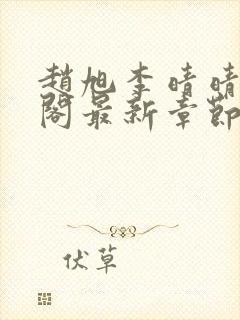 趙旭李晴晴
閣最新章節
伏草